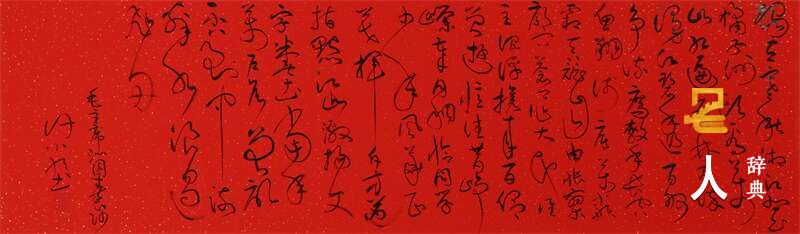 独立寒秋湘江北去
橘子洲头看万
山红遍层林尽染
漫江碧透百舸
争流鹰击长空
鱼翔浅底万类
霜天竞自由怅寥
廓问苍茫大地谁
主沉浮携来百侣
曾游忆往昔峥
嵘岁月稠恰同学
少年风华正
茂挥斥方遒
指点江山激扬文
字粪土当年
万户侯曾记
否到中流
击水浪遏
飞舟
毛主席沁园春长沙
名人
辞典